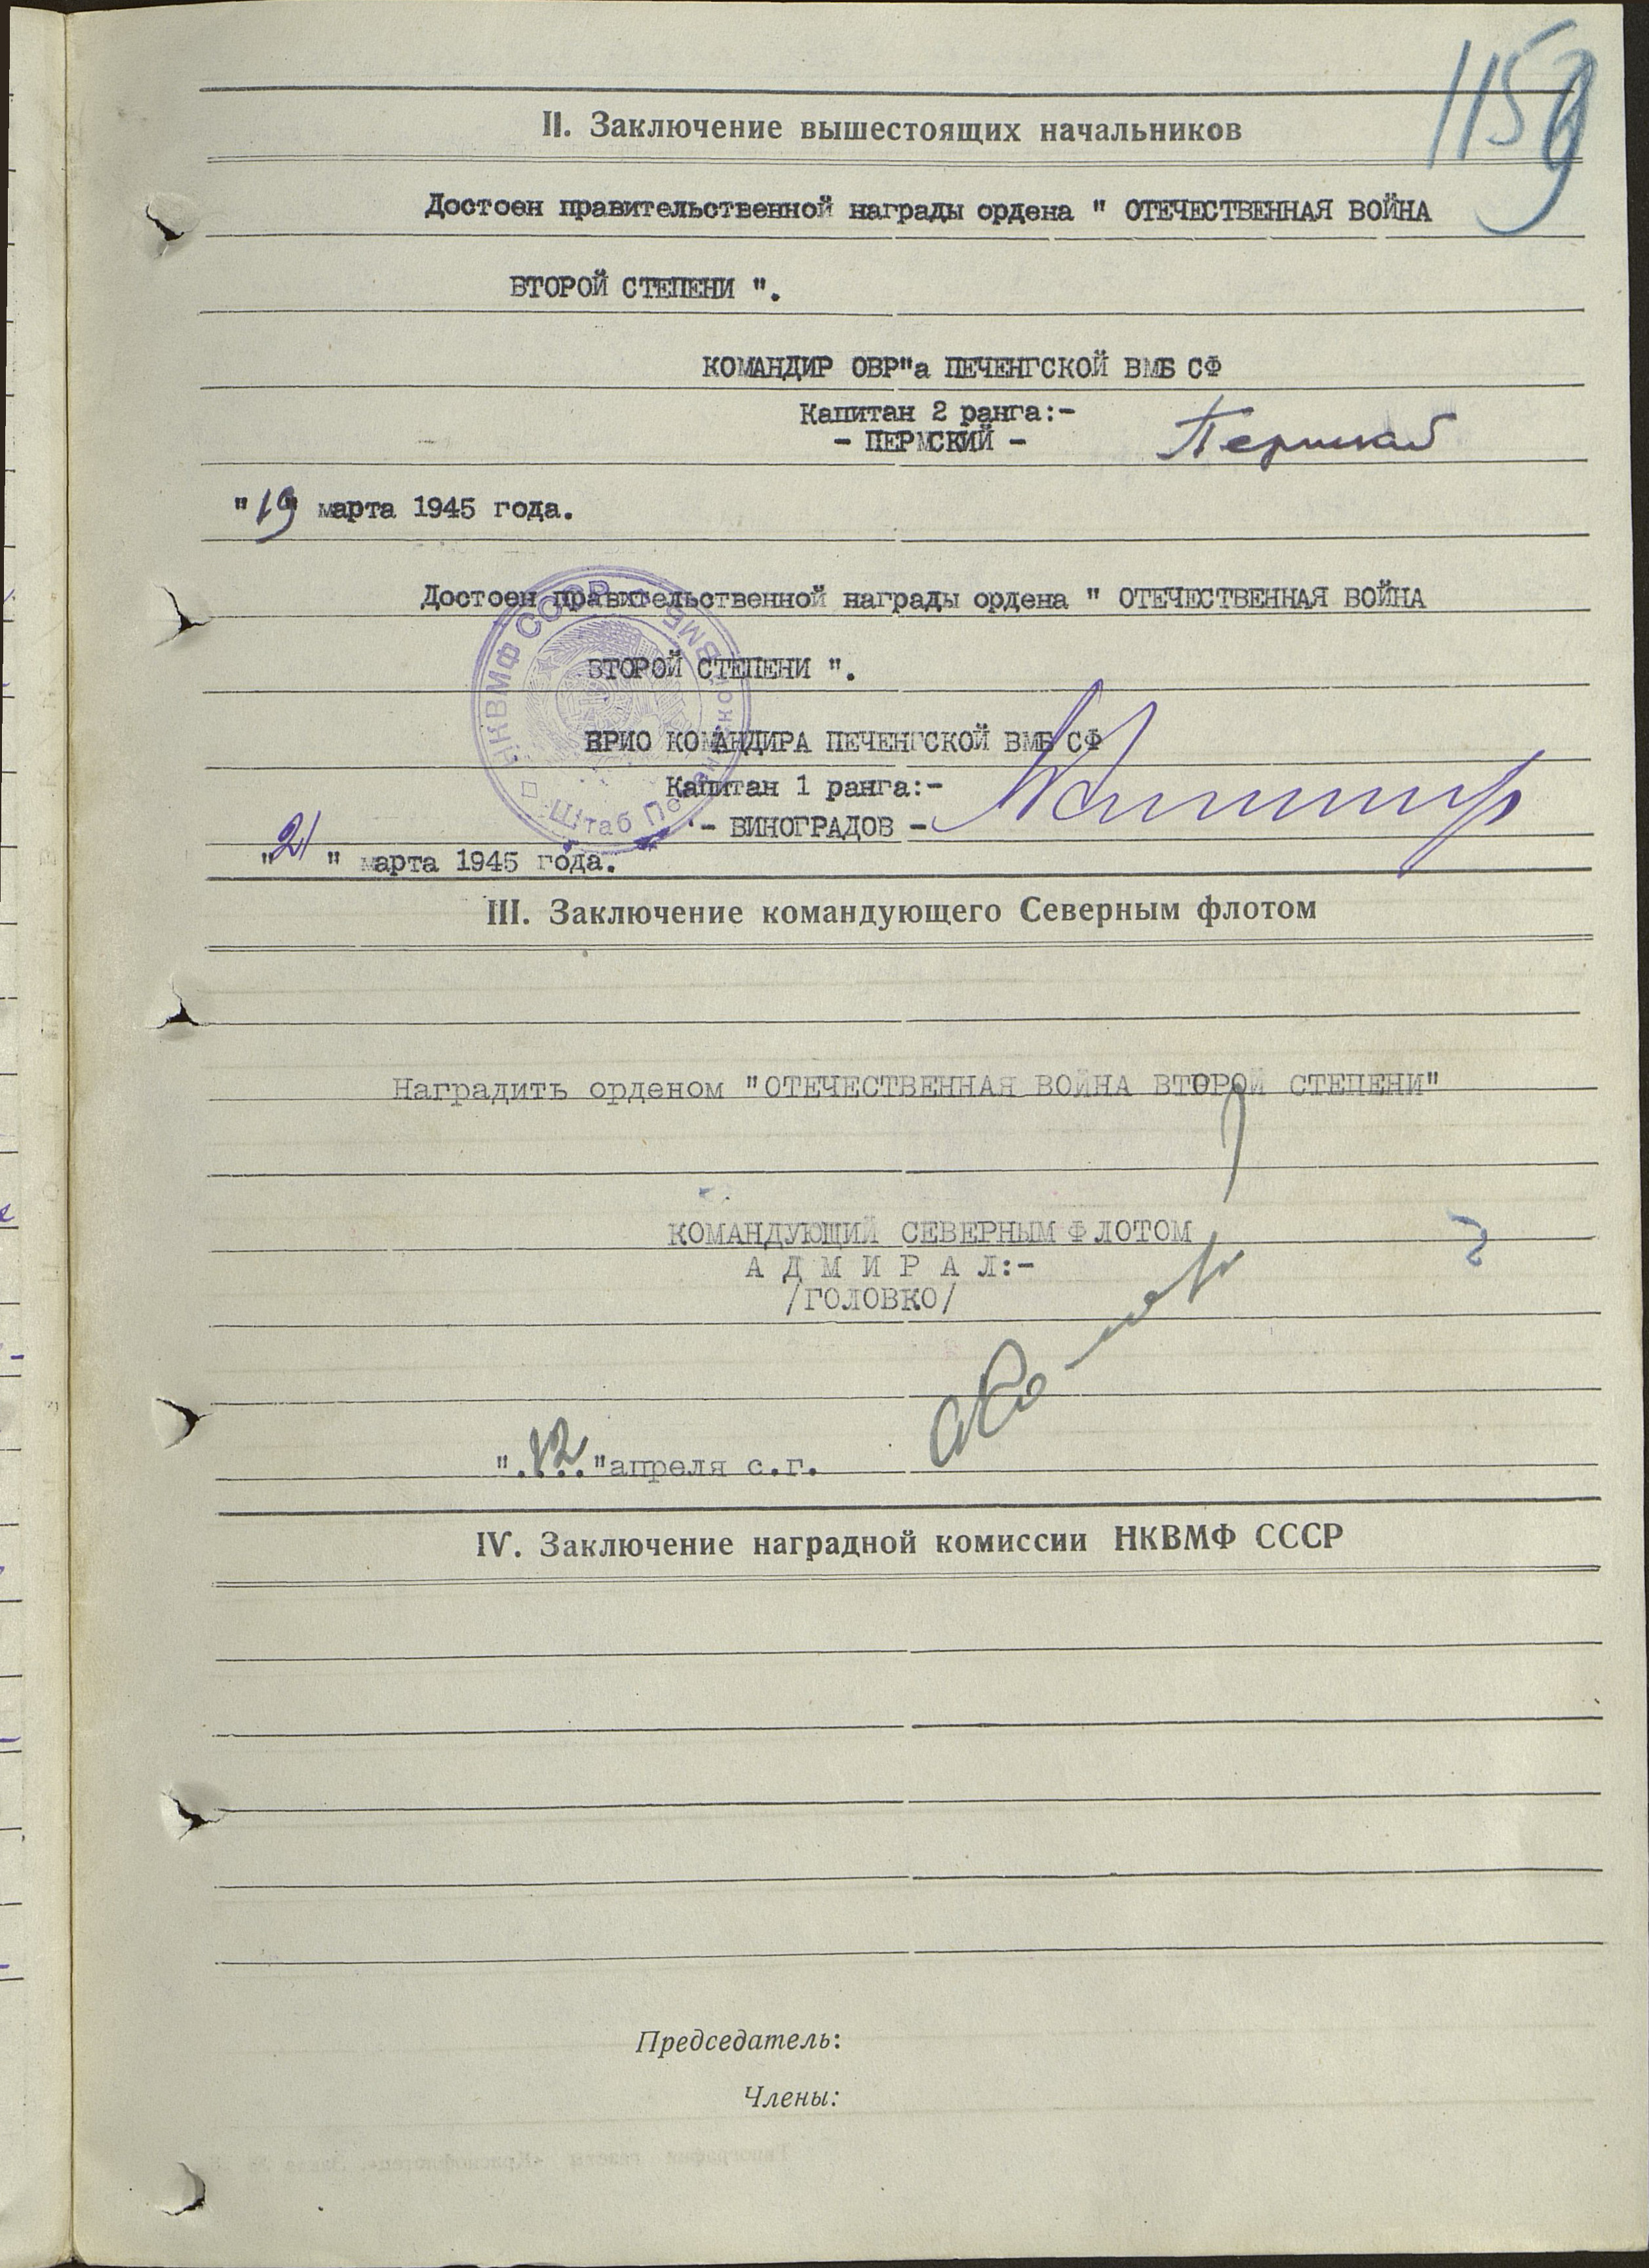 1159
II. Заключение вышестоящих начальников
Достоен правительственной награды ордена " ОТЕЧЕСТВЕННАЯ ВОЙНА
ВТОРОЙ СТЕПЕНИ ".
КОМАНДИР ОВР"а ПЕЧЕНГСКОЙ ВМБ СФ
Капитан 2 ранга:-
- ПЕРМСКИЙ - Пермский
"19" марта 1945 года.
Достоен правительственной награды ордена " ОТЕЧЕСТВЕННАЯ ВОЙНА
ВТОРОЙ СТЕПЕНИ ".
НКВМФ СССР
Штаб Печенгской ВМБ
ВРИО КОМАНДИРА ПЕЧЕНГСКОЙ ВМБ СФ
Капитан 1 ранга:-
- ВИНОГРАДОВ -
"21" марта 1945 года.
III. Заключение командующего Северным флотом
Наградить орденом "ОТЕЧЕСТВЕННАЯ ВОЙНА ВТОРОЙ СТЕПЕНИ"
КОМАНДУЮЩИЙ СЕВЕРНЫМ ФЛОТОМ
А Д М И Р А Л:-
/ГОЛОВКО/
".12."апреля с.г.
IV. Заключение наградной комиссии НКВМФ СССР
Председатель:
Члены: